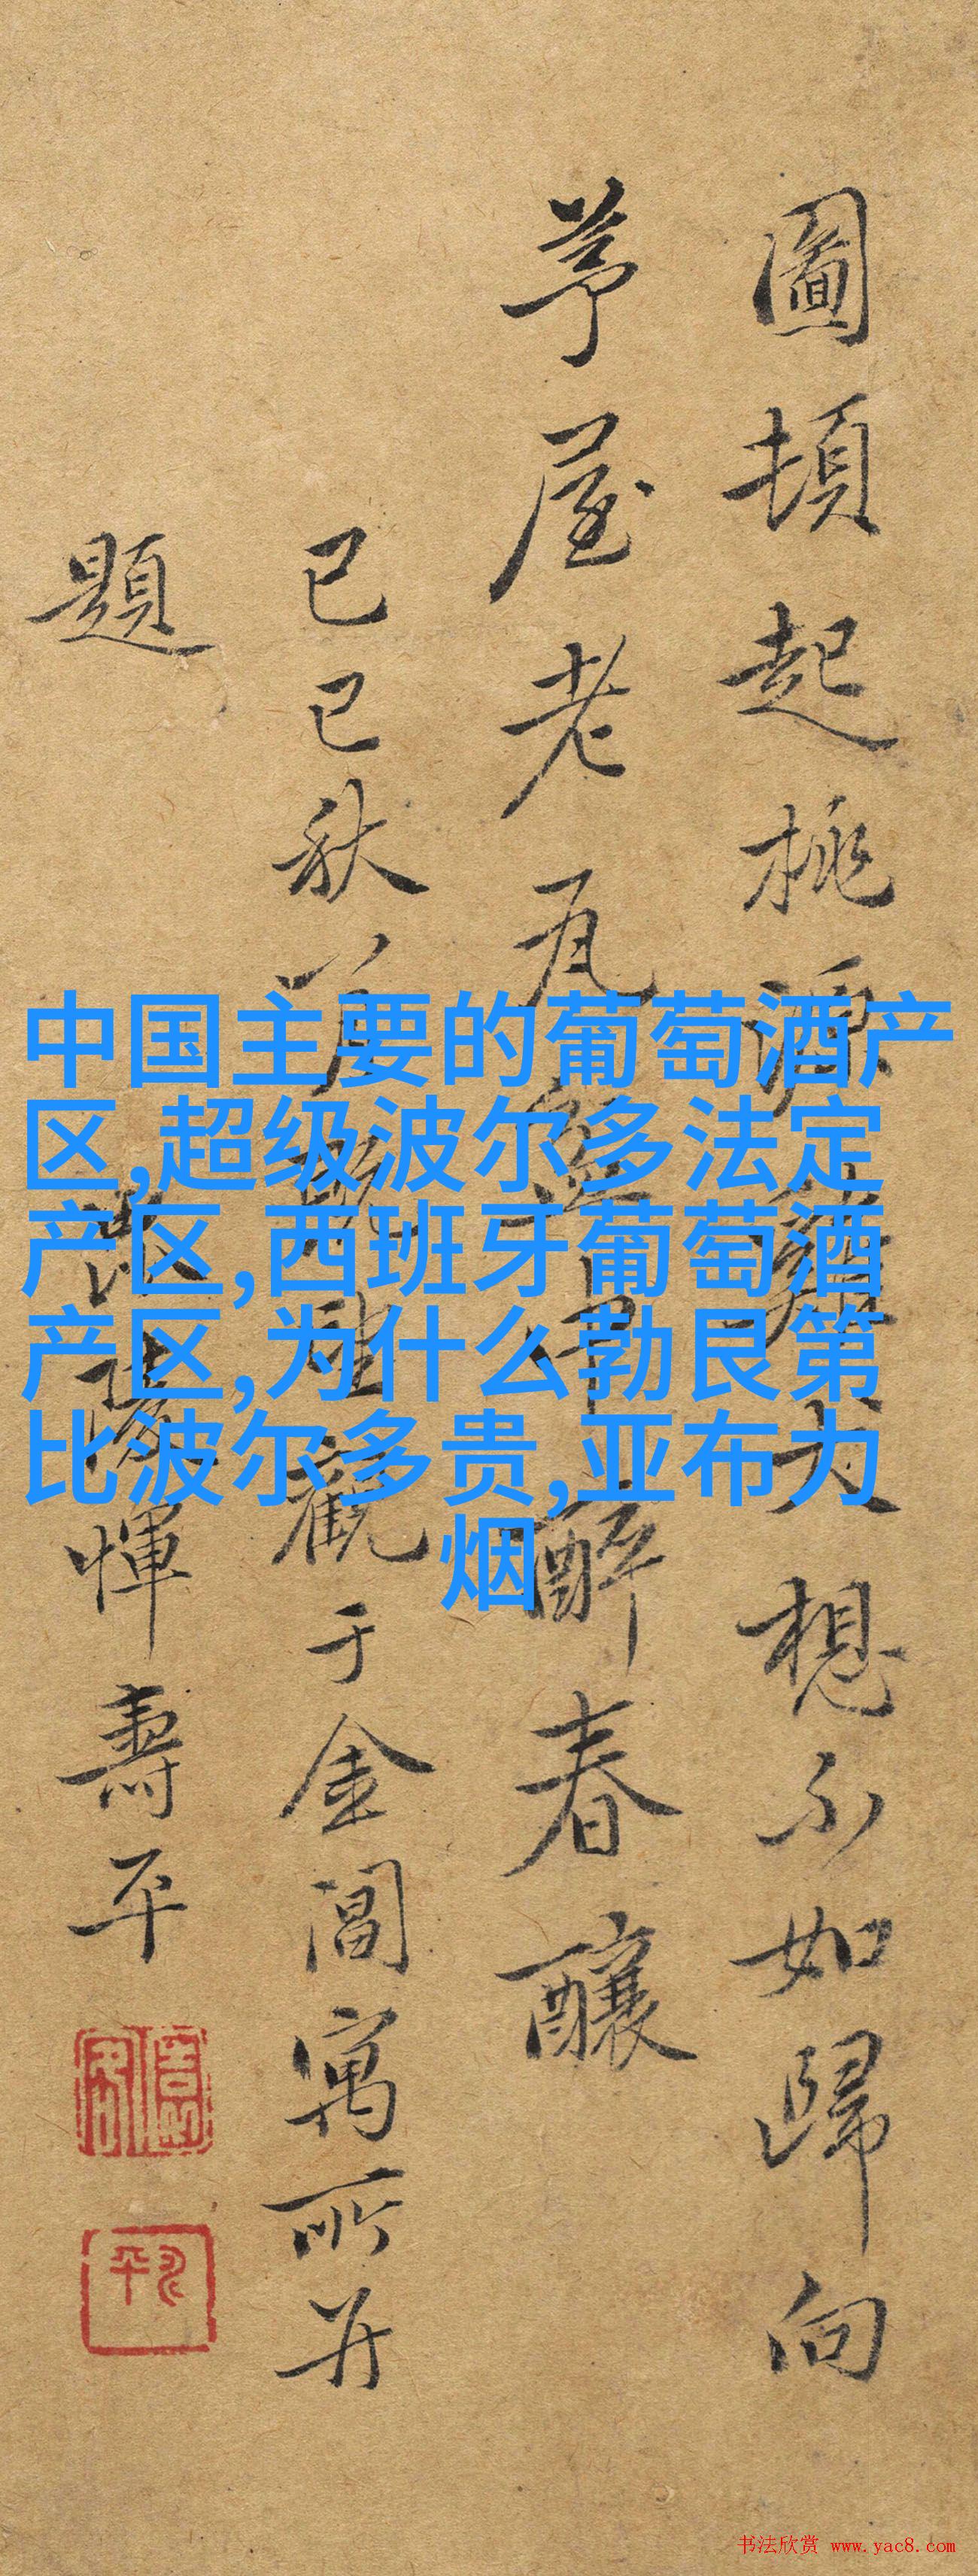 圖頓起桃源雞犬想不如歸向
茅屋老瓦盆中醉春釀
己巳秋八月既望觀于金閶寓所并
題
惲壽平
中国主要的葡萄酒产
区,超级波尔多法定
产区,西班牙葡萄酒
产区,为什么勃艮第
比波尔多贵,亚布力
烟
书法欣赏 www.yac8.com